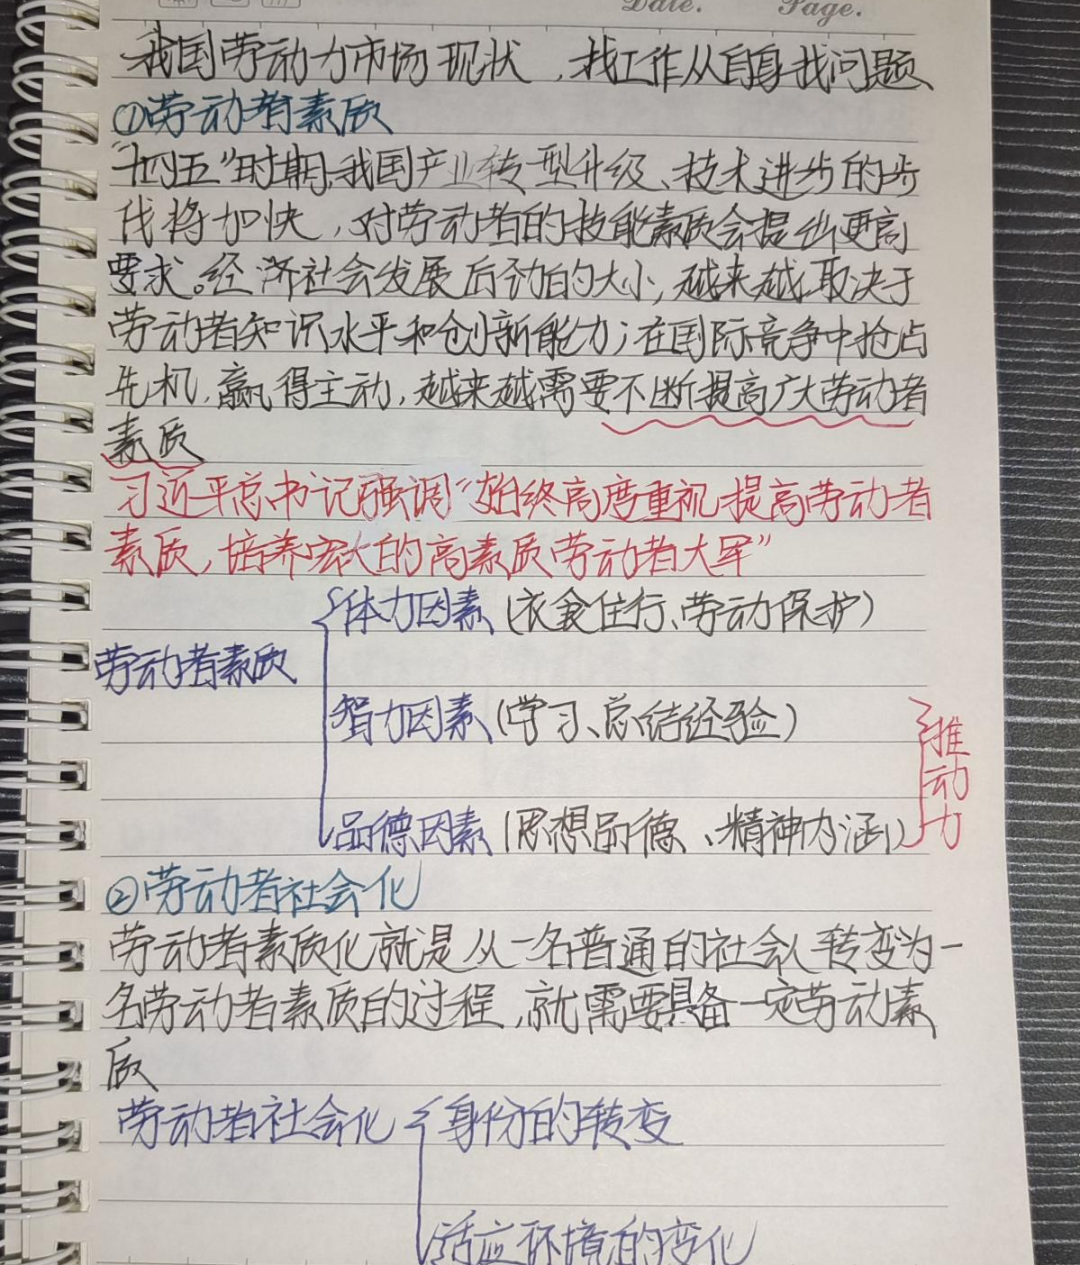 Date. Page.
我国劳动力市场现状，找工作从自身找问题
①劳动者素质
“十四五”时期，我国产业转型升级、技术进步的步
伐将加快，对劳动者的技能素质会提出更高
要求。经济社会发展后劲的大小，越来越取决于
劳动者知识水平和创新能力；在国际竞争中抢占
先机，赢得主动，越来越需要不断提高广大劳动者
素质
习近平总书记强调“始终高度重视提高劳动者
素质，培养宏大的高素质劳动者大军”
体力因素（衣食住行、劳动保护）
劳动者素质
智力因素（学习、总结经验）
推动力
品德因素（思想品德、精神内涵）
②劳动者社会化
劳动者素质化就是从一名普通的社会人转变为一
名劳动者素质的过程，就需要具备一定劳动素
质
劳动者社会化 身份的转变
适应环境的变化